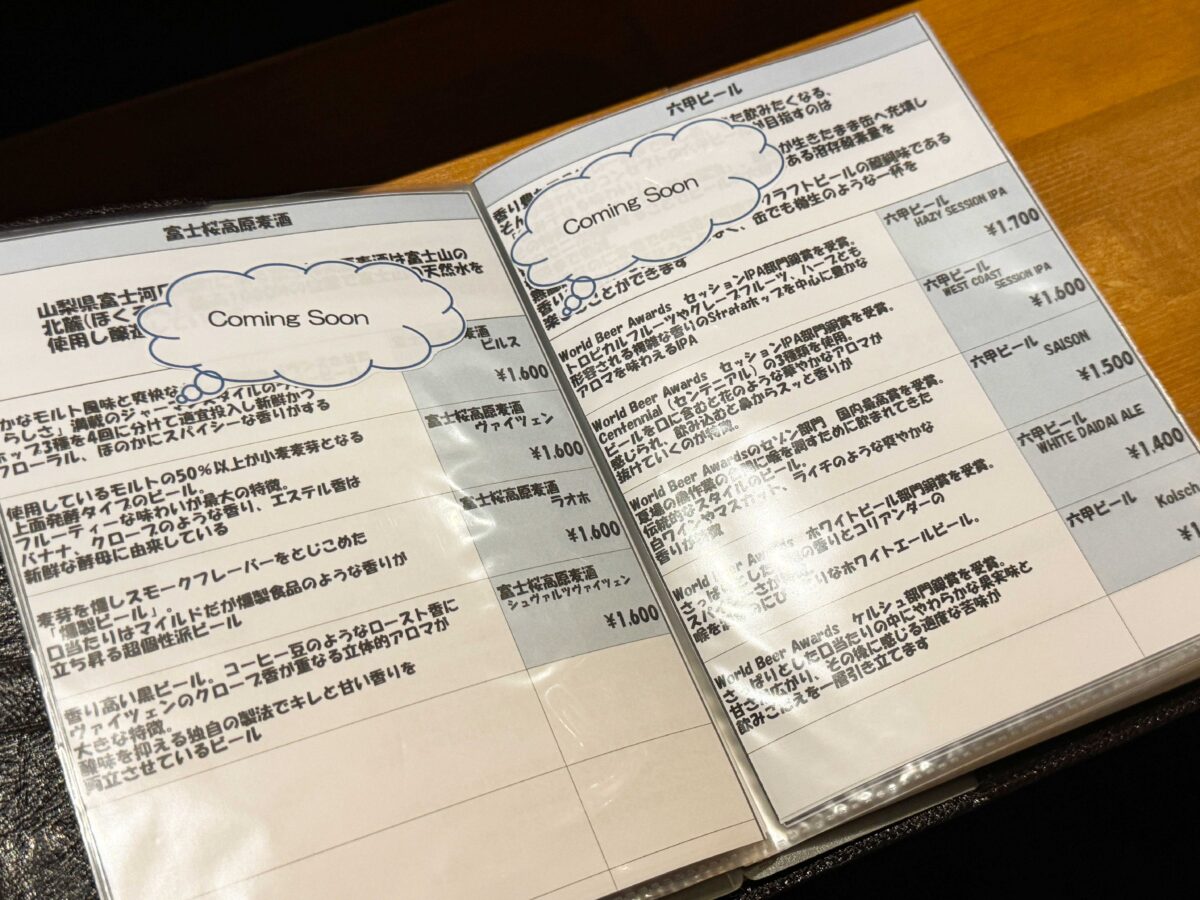 富士桜高原麦酒
麦酒は富士山の
山梨県富士河
天然水を
北麓(ほく
使用し醸造
Coming Soon
麦酒
ピルス
¥1.600
かなモルト風味と爽快な
らしさ」満載のジャー
イルのラ
ホップ3種を4回に分けて適宜投入し新鮮かつ
フローラル、ほのかにスパイシーな香りがする
富士桜高原麦酒
ヴァイツェン
¥1.600
使用しているモルトの50%以上が小麦麦芽となる
上面発酵タイプのビール。
フルーティーな味わいが最大の特徴。
バナナ、クローブのような香り、エステル香は
新鮮な酵母に由来している
富士桜高原麦酒
ラオホ
¥1.600
麦芽を燻しスモークフレーバーをとじこめた
「燻製ビール」。
口当たりはマイルドだが燻製食品のような香りが
立ち昇る超個性派ビール
富士桜高原麦酒
シュヴァルツヴァイツェン
¥1.600
香り高い黒ビール。コーヒー豆のようなロースト香に
ヴァイツェンのクローブ香が重なる立体的アロマが
大きな特徴。
酸味を抑える独自の製法でキレと甘い香りを
両立させているビール
六甲ビール
た飲みたくなる、
が目指すのは
香り豊
そん
が生きたまま缶へ充填し
ある溶存酸素量を
クラフトビールの醍醐味である
缶でも樽生のような一杯を
香り
楽
ことができます
Coming Soon
六甲ビール
HAZY SESSION IPA
¥1.700
World Beer Awards セッションIPA部門銅賞を受賞。
トロピカルフルーツやグレープフルーツ、ハーブとも
形容される複雑な香りのStrataホップを中心に豊かな
アロマを味わえるIPA
六甲ビール
WEST COAST
SESSION IPA
¥1.600
World Beer Awards セッションIPA部門銅賞を受賞。
Centennial(センテニアル)の3種類を使用。
ビールを口に含むと花のような華やかなアロマが
感じられ、飲み込むと鼻からスッと香りが
抜けていくのが特徴。
六甲ビール
SAISON
¥1.500
World Beer Awardsのセゾン部門 国内最高賞を受賞。
夏場の農作業の
に喉を潤すために飲まれてきた
伝統的なスタイルのビール。
白ワインやマスカット、ライチのような爽やかな
香りが
六甲ビール
WHITE DAIDAI ALE
¥1.400
World Beer Awards ホワイトビール部門銅賞を受賞。
さっぱりとした
の香りとコリアンダーの
スパ
さが
りなホワイトエールビール。
喉を
六甲ビール
Kolsch
¥1
World Beer Awards ケルシュ部門銅賞を受賞。
さっぱりとした口当たりの中にやわらかな果実味と
甘さが広がり、その後に感じる適度な苦味が
飲みごたえを一層引き立てます